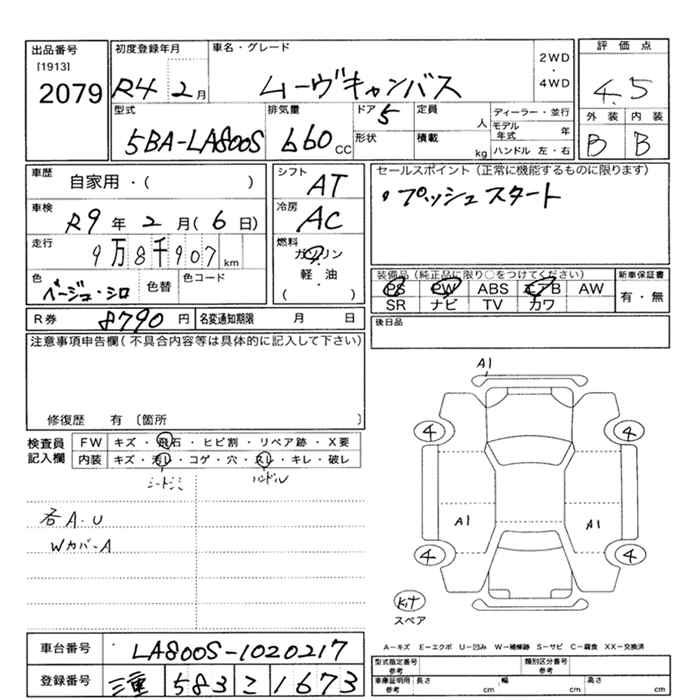 出品番号
[1913]
2079
初度登録年月
R4 2月
車名・グレード
ムーヴキャンバス
2WD
・
4WD
評価点
4.5
外装 内装
B B
型式
5BA-LA800S
排気量
660 CC
ドア 5
形状
定員 人
積載 kg
ディーラー・並行
モデル年式 年
ハンドル 左・右
車歴
自家用・( )
車検
R9年2月(6日)
走行
9万8千907km
色
ベージュ・シロ
色替
色コード
シフト
AT
冷房
AC
燃料
ガソリン
・
軽油
( )
セールスポイント(正常に機能するものに限ります)
・プッシュスタート
装備品(純正品に限り○をつけてください)
PS PW ABS エアB AW
SR ナビ TV カワ
新車保証書
有・無
後日品
R券 8790円
名変通知期限 月 日
注意事項申告欄(不具合内容等は具体的に記入して下さい)
修復歴 有〔箇所 〕
検査員
記入欄
FW キズ・飛石・ヒビ割・リペア跡・X要
内装 キズ・汚レ・コゲ・穴・スレ・キレ・破レ
シートシミ ハンドル
各A.U
Wカバー A
A1
4 4
A1 A1
4 4
Kit
スペア
車台番号 LA800S-1020217
登録番号 三重 583 こ 1673
A−キズ E−エクボ U−凹み W−補修跡 S−サビ C−腐食 XX−交換済
型式指定番号
参考
類別区分番号
参考
車庫証明用
参考
長さ cm 幅 cm 高さ cm